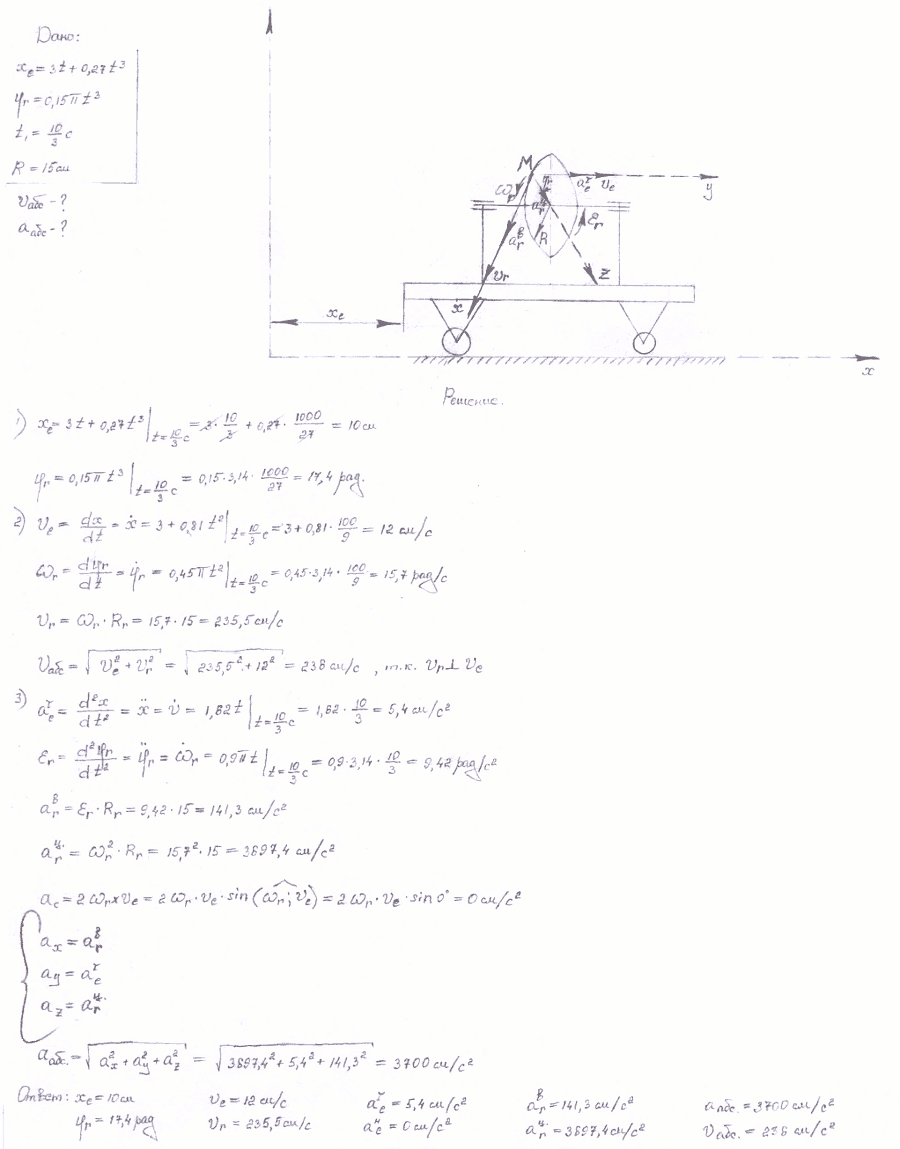 Дано:
xₑ = 3t + 0,27t³
φᵣ = 0,15πt³
t₁ = 10/3 с
R = 15см
υабс - ?
aабс - ?
M
ωᵣ
φᵣ
aₑᵗ υₑ
y
aᵣᴮ
R
εᵣ
υᵣ
z
x
xₑ
x
Решение.
1) xₑ = 3t + 0,27t³|t=10/3 с = 3·10/3 + 0,27·1000/27 = 10см
φᵣ = 0,15πt³|t=10/3 с = 0,15·3,14·1000/27 = 17,4 рад.
2) υₑ = dx/dt = ẋ = 3 + 0,81t²|t=10/3 с = 3 + 0,81·100/9 = 12 см/с
ωᵣ = dφᵣ/dt = φ̇ᵣ = 0,45πt²|t=10/3 с = 0,45·3,14·100/9 = 15,7 рад/с
υᵣ = ωᵣ·Rᵣ = 15,7·15 = 235,5 см/с
υабс = √(υₑ² + υᵣ²) = √(235,5² + 12²) = 238 см/с , т.к. υᵣ ⊥ υₑ
3) aₑᵗ = d²x/dt² = ẍ = υ̇ = 1,62t|t=10/3 с = 1,62·10/3 = 5,4 см/с²
εᵣ = d²φᵣ/dt² = φ̈ᵣ = ω̇ᵣ = 0,9πt|t=10/3 с = 0,9·3,14·10/3 = 9,42 рад/с²
aᵣᴮ = εᵣ·Rᵣ = 9,42·15 = 141,3 см/с²
aᵣц. = ωᵣ²·Rᵣ = 15,7²·15 = 3697,4 см/с²
a_c = 2ωᵣxυₑ = 2ωᵣ·υₑ·sin(ωᵣ;υₑ) = 2ωᵣ·υₑ·sin0° = 0 см/с²
aₓ = aᵣᴮ
a_y = aₑᵗ
a_z = aᵣц.
aабс. = √(aₓ² + a_y² + a_z²) = √(3697,4² + 5,4² + 141,3²) = 3700 см/с²
Ответ: xₑ = 10см υₑ = 12 см/с aₑᵗ = 5,4 см/с² aᵣᴮ = 141,3 см/с² aабс. = 3700 см/с²
φᵣ = 17,4 рад υᵣ = 235,5 см/с aₑц = 0 см/с² aᵣц. = 3697,4 см/с² υабс. = 238 см/с²